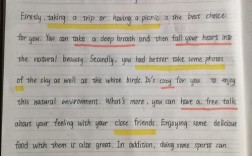 Firstly, taking a trip or having a picnic is the best choice
for you. You can take a deep breath and then fall your heart into
the natural breway. Secondly, you had better take some photos
of the sky as well as the white birds. It's cosy for you to enjoy
this natural environment. What's more, you can have a free talk
about your feeling with your close friends. Enjoying some delicious
food wish them is also great. In addition, doing some sports can